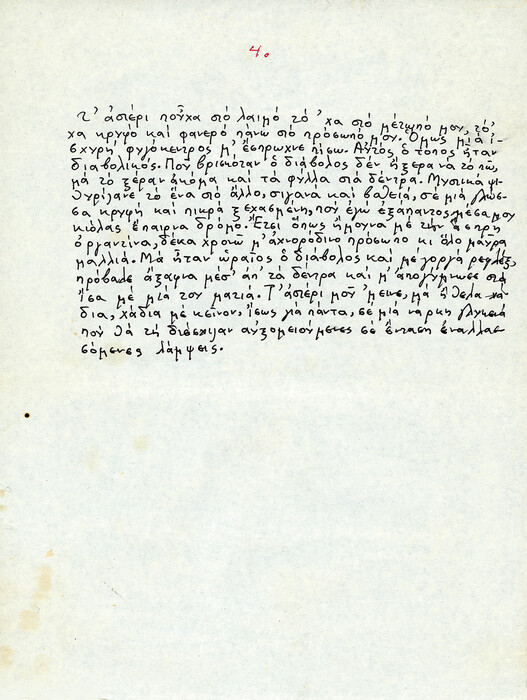 4.
Τ' ἀστέρι ποὖχα στό λαιμό τό 'χα στό μέτωπό μου, τό
χα κρυφό καί φανερό πάνω στό πρόσωπό μου. Ὅμως μιά ἰ-
σχυρή φυγόκεντρος μ' ἔσπρωχνε πίσω. Αὐτός ὁ τόπος ἦταν
διαβολικός. Ποῦ βρισκόταν ὁ διάβολος δέν ἤξερα νά τό πῶ,
μά τό ξέραν ἀκόμα καί τά φύλλα στά δέντρα. Μυστικά ψι-
θυρίζανε τό ἕνα στό ἄλλο, σιγανά καί βαθειά, σέ μιά γλῶσ-
σα κρυφή καί πικρά ξεχασμένη, πού ἐγώ ἐξάπαντος μέσα μου
κιόλας ἔπαιρνα δρόμο. Ἔτσι ὅπως ἤμουνα μέ τήν ἄσπρη
ὀργαντίνα, δέκα χρονῶ μ' ἀχνορόδινο πρόσωπο κι ὅλο μαῦρα
μαλλιά. Μά ἦταν ὡραῖος ὁ διάβολος καί μέ γοργά ρεφλέξ,
πρόβαλε ἄξαφνα μέσ' ἀπ' τά δέντρα καί μ' ἀπογύμνωσε στά
ἴσα μέ μιά του ματιά. Τ' ἀστέρι μοῦ 'μεινε, μά ἤθελα χά-
δια, χάδια μέ κεῖνον, ἴσως γιά πάντα, σέ μιά νάρκη γλυκειά
πού θά τή διέσχιζαν αὐξομειούμενες σέ ἔνταση ἐναλλασ-
σόμενες λάμψεις.